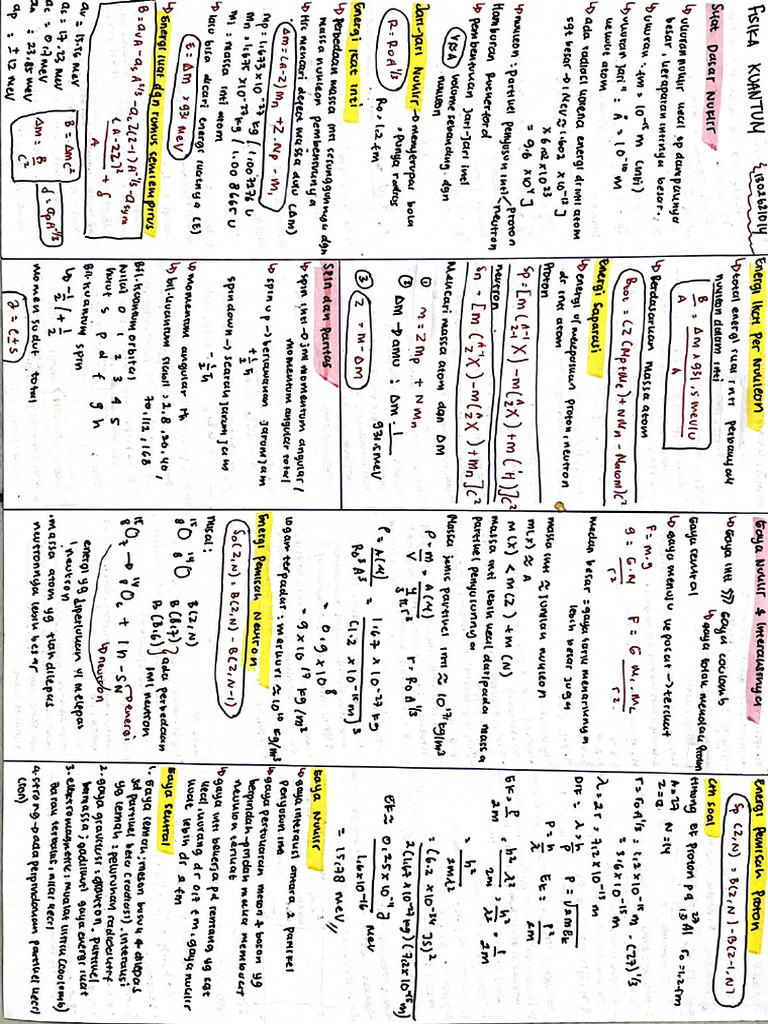 FISIKA KUANTUM
Sifat Dasar Nuklir
↳ ukuran nuklir kecil tp dampaknya
besar, kerapatan intinya besar.
↳ ukuran: fm = 10⁻¹⁵ m (inti)
↳ ukuran jari²: Å = 10⁻¹⁰ m
ukuran atom
↳ ada radiasi karena energi dr inti atom
sgt besar → 1 MeV ≈ 1.602 × 10⁻¹³ J
× 6.02 × 10²³
= 9,6 × 10⁴ J
↳ nukleon: partikel penyusun inti proton
neutron
Hamburan Rutherford
↳ pembentukan jari-jari inti
V ∝ A volume sebanding dgn
nukleon
Jari-jari Nuklir → menyerupai bola
R = R₀ A^1/3
• punya radius
R₀ = 1,2 fm
Energi Ikat Inti
↳ Perbedaan massa inti sesungguhnya dgn
massa nukleon pembentuknya
↳ Hrs mencari defect massa dulu (Δm)
Δm = (A-Z) mn + Z.mp - mi
mp = 1,673 × 10⁻²⁷ kg / 1.007276 u
mn = 1,675 × 10⁻²⁷ kg / 1.008665 u
mi = massa inti atom
↳ lalu bisa dicari energi ikatnya (E)
E = Δm × 931 MeV
↳ Energi ikat dgn rumus semiempirus
B = avA - as A^2/3 - ac Z(Z-1) A^-1/3 - asym (A-2Z)²/A + δ
av = 15.56 MeV
as = 17.23 MeV
ac = 0.7 MeV
aa = 23.285 MeV
ap = ±12 MeV
B = Δmc²
Δm = B/c²
δ = ap A^1/3
Energi Ikat Per Nukleon
↳ total energi ikat inti perbanyak
nukleon dalam inti
B/A = Δm × 931,5 MeV/u / A
↳ Berdasarkan massa atom
Btot = [Z(Mp+Me) + NMn - Natom]c²
Energi Saparasi
↳ energi u/ melepaskan proton, neutron
dr inti atom
Proton
Sp = [m(A-1 Z-1 X) - m(A Z X) + m(¹H)]c²
neutron
Sn = [m(A-1 Z X) - m(A Z X) + mn]c²
Mencari massa atom dgn Δm
① m = Zmp + Nmn
② Δm → amu : Δm . 1/931.5 MeV
③ Z = m - Δm
Spin dan Paritas
↳ spin inti → jml momentum angular /
momentum angular total
↳ spin up → berlawanan jarum jam
+½ħ
spin down → searah jarum jam
-½ħ
↳ momentum angular ħ
↳ bil. kuantum stabil → 2, 8, 20, 40,
70, 112, 168
Bil. kuantum orbital
Nilai 0 1 2 3 4 5
huruf s p d f g h
Bil. kuantum spin
↳ -½ / +½
momen sudut total
J = ℓ ± s
Gaya Nuklir & Interaksinya
↳ Gaya inti >> gaya coulomb
↳ gaya tolak menolak proton
Gaya central
↳ gaya menuju ke pusat → terkuat
F = m.g
g = G.M / r²
F = G m₁.m₂ / r²
makin besar - gaya tarik menariknya
lebih besar juga
massa inti ≈ jumlah nukleon
m(r) ≈ A
M(X) < m(Z) + m(N)
massa inti lebih kecil daripada massa
partikel penyusunnya
Massa jenis partikel inti ≈ 10¹⁷ kg/m³
ρ = m/V = A(M) / 4/3 π r³
r = R₀ A^1/3
ρ = A(M) / R₀³ A³ = 1.67 × 10⁻²⁷ kg / (1.2 × 10⁻¹⁵ m)³
= 0.9 × 10⁸
= 9 × 10¹⁷ kg/m³
logam terpadat: merkuri ≈ 10¹⁰ kg/m³
Energi Pemisah Neutron
Sn(Z,N) = B(Z,N) - B(Z,N-1)
misal:
¹⁵₈O ¹⁴₈O B(Z,N)
B(8,7)
B(8,6) } ada perbedaan
1ml neutron
¹⁵₈O₇ → ¹⁴₈O₆ + 1n - SN
↳ energi
↳ neutron
energi yg diperlukan u/ melepas
1 neutron
massa atom yg tlah dilepas
neutronnya lebih besar
Energi Pemisah Proton
Sp(Z,N) = B(Z,N) - B(Z-1,N)
Cth soal
Hitung EK Proton pd ²⁷₁₃Al r₀ = 1.2 fm
A = 27 N = 14
r = r₀A^1/3 = 1.2 × 10⁻¹⁵ m . (27)^1/3
= 3.6 × 10⁻¹⁵ m
λ = 2r = 7.2 × 10⁻¹⁵ m
Dit: λ = h/p P = √2m Ek
P = h/λ Ek = P²/2m
Ek = P²/2m = h²/λ² / 2m = h²/λ² . 1/2m
= h²/2mλ²
= (6.2 × 10⁻³⁴ Js)² / 2(1.67 × 10⁻²⁷ kg)(7.2 × 10⁻¹⁵ m)
= 15.78 MeV //
Gaya Nuklir
↳ gaya interaksi antara 2 partikel
penyusun inti
↳ gaya pertukaran meson & boson yg
berpindah-pindah maka membuat
nukleon terikat
↳ gaya inti bekerja pd rentang yg sgt
kecil, kurang dr 0.7 fm, gaya nuklir
kuat lebih dr 2 fm
Gaya Sentral
1. Gaya lemah; meson
pd partikel beta (radiasi), interaksi
yg lemah; peluruhan radioaktif
2. gaya gravitasi: graviton, partikel
bermassa; padilihat gaya energi ikat
3. elektromagnetic: muatan listrik (coulomb)
4. strong → pada perpindahan partikel kecil